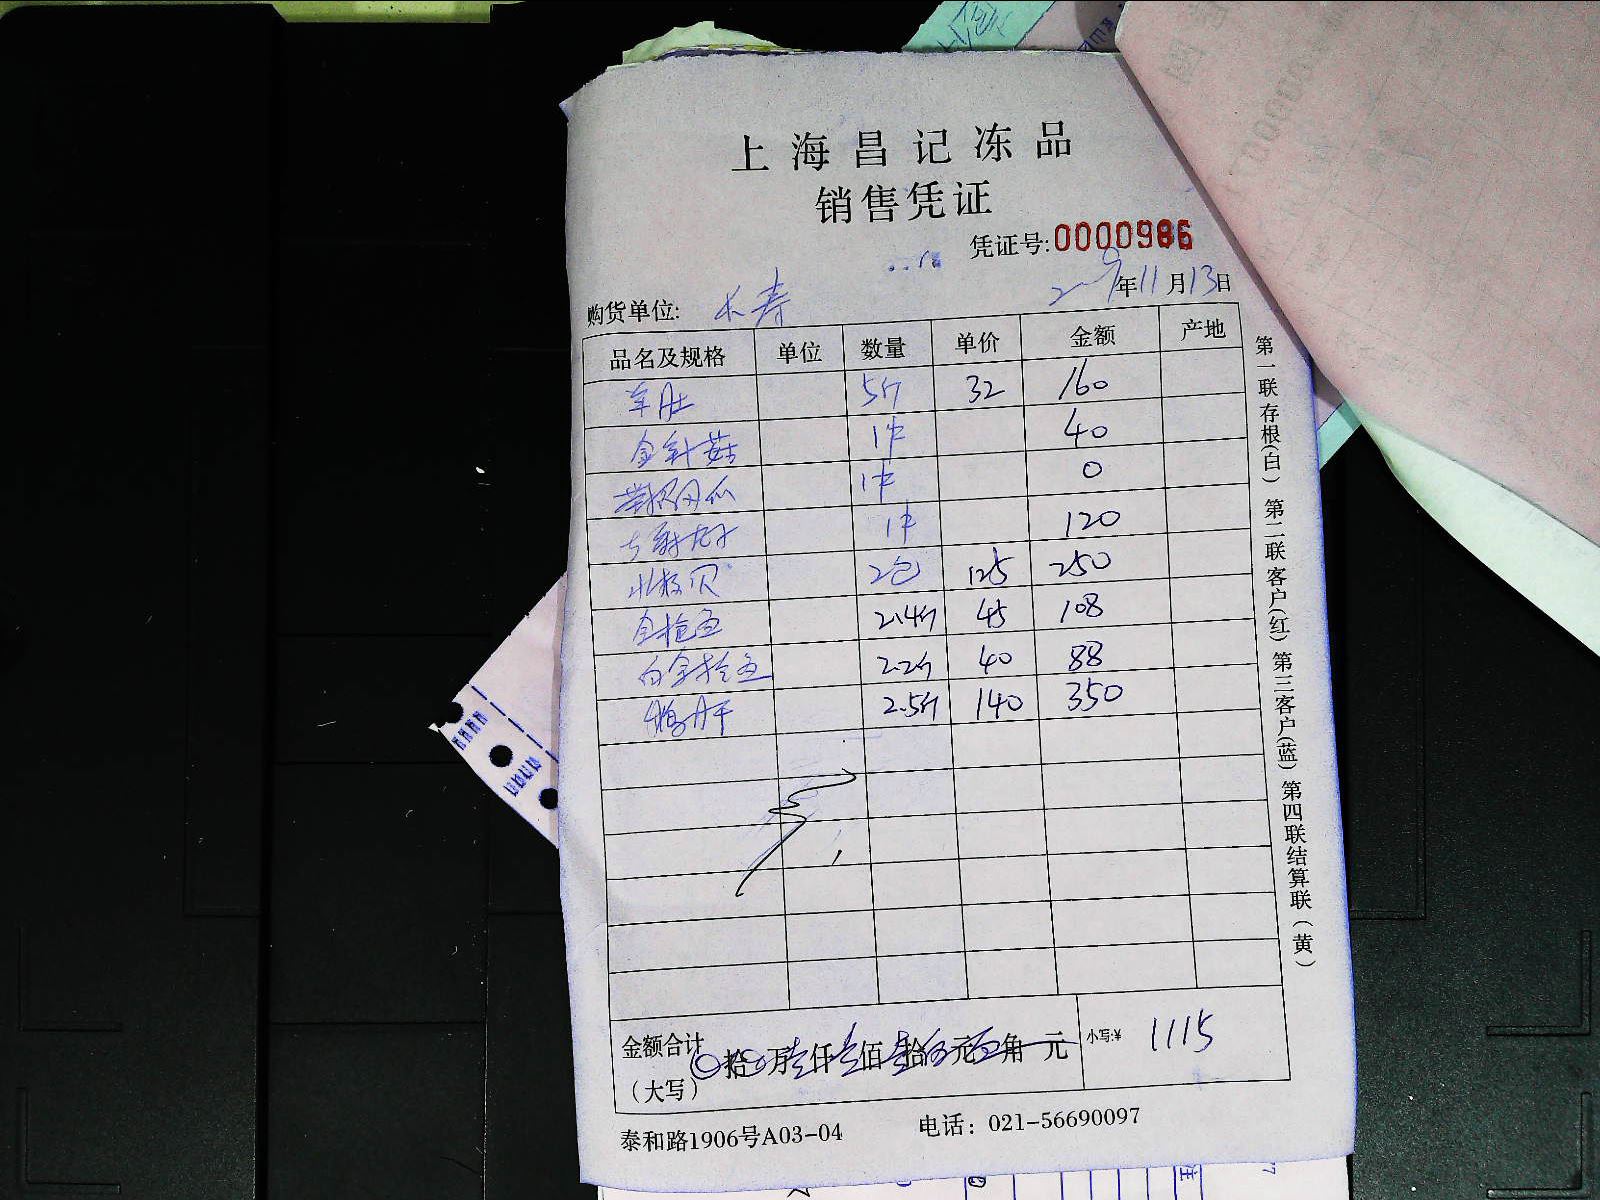 上海昌记冻品
销售凭证
凭证号:0000986
年11月13日
购货单位: 长寿
品名及规格 单位 数量 单价 金额 产地
5斤 32 160
金针菇 1件 40
1件 0
1件 120
北极贝 2包 125 250
金枪鱼 2.4斤 45 108
白金枪鱼 2.2斤 40 88
鹅肝 2.5斤 140 350
金额合计 拾 万 仟 佰 拾 元 角 元 小写:¥ 1115
(大写)
泰和路1906号A03-04 电话: 021-56690097
第一联存根(白) 第二联客户(红) 第三客户(蓝) 第四联结算联(黄)